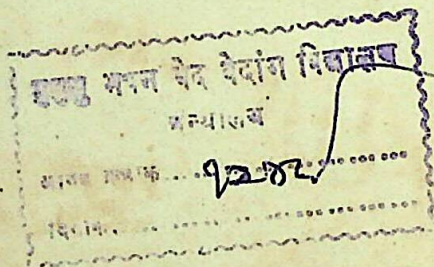 मुमुक्षु भवन वेद वेदांग विद्यालय
ग्रन्थालय
आगत क्रमांक....................
दिनांक....................